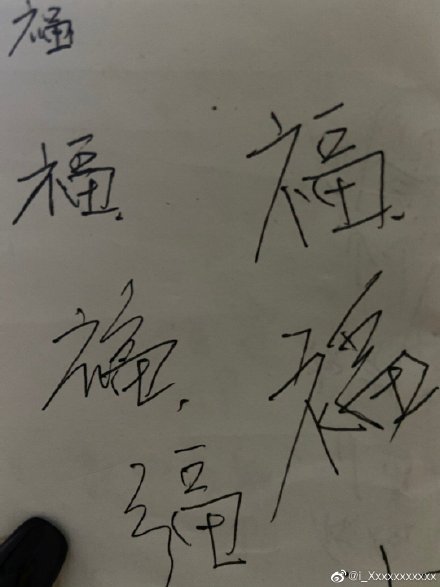 福
福 福
福 福
福
@i_Xxxxxxxxxxx